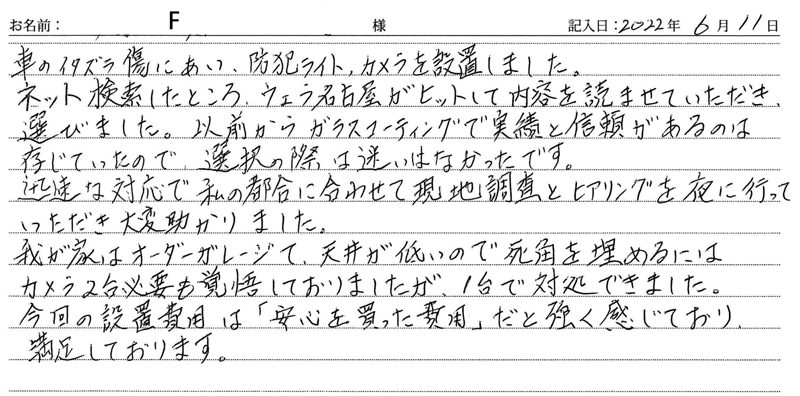 お名前： F 様 記入日：2022年 6月 11日
車のイタズラ傷にあい、防犯ライト、カメラを設置しました。
ネット検索したところ、ウェラ名古屋がヒットして内容を読ませていただき、
選びました。以前からガラスコーティングで実績と信頼があるのは
存じていったので、選択の際は迷いはなかったです。
迅速な対応で私の都合に合わせて現地調査とヒアリングを夜に行って
いただき大変助かりました。
我が家はオーダーガレージで、天井が低いので死角を埋めるには
カメラ2台必要も覚悟しておりましたが、1台で対処できました。
今回の設置費用は「安心を買った費用」だと強く感じており、
満足しております。